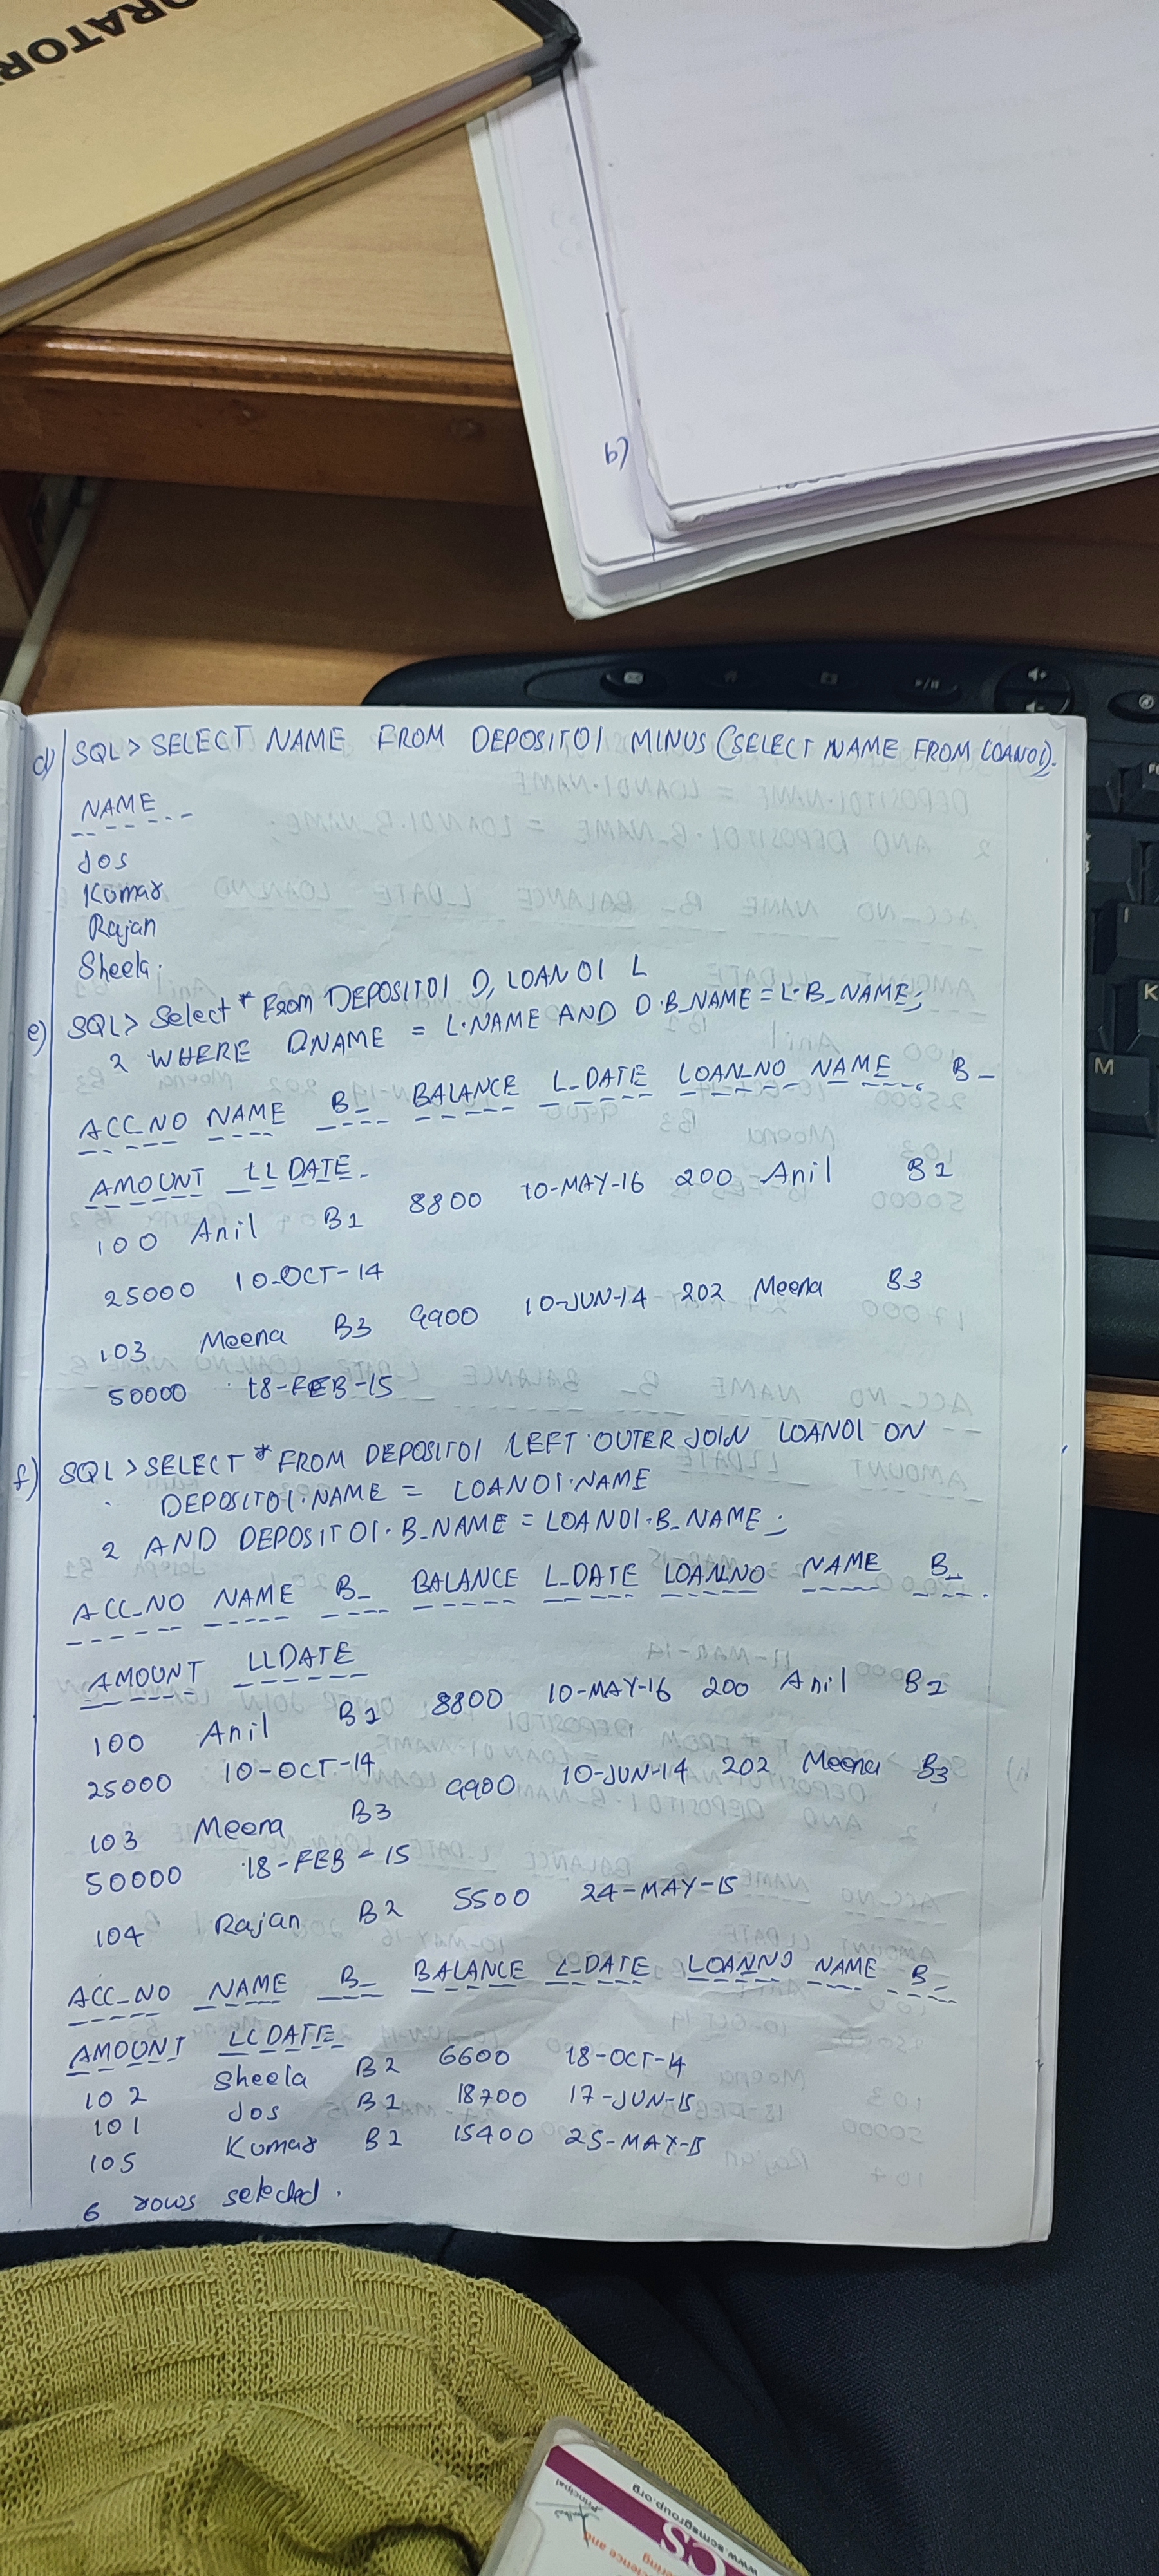 ORATOR
b)
d) SQL > SELECT NAME FROM DEPOSIT01 MINUS (SELECT NAME FROM LOAN01).
NAME
Jos
Kumar
Rajan
Sheela.
e) SQL> Select * From DEPOSIT01 D, LOAN01 L
2 WHERE D.NAME = L.NAME AND D.B_NAME = L.B_NAME;
ACC_NO NAME B_ BALANCE L_DATE LOAN_NO NAME B_
AMOUNT LLDATE
100 Anil B1 8800 10-MAY-16 200 Anil B1
25000 10-OCT-14
103 Meena B3 9900 10-JUN-14 202 Meena B3
50000 18-FEB-15
f) SQL > SELECT * FROM DEPOSIT01 LEFT OUTER JOIN LOAN01 ON
DEPOSIT01.NAME = LOAN01.NAME
2 AND DEPOSIT01.B_NAME = LOAN01.B_NAME;
ACC_NO NAME B_ BALANCE L_DATE LOANNO NAME B_
AMOUNT LLDATE
100 Anil B1 8800 10-MAY-16 200 Anil B1
25000 10-OCT-14
103 Meena B3 9900 10-JUN-14 202 Meena B3
50000 18-FEB-15
104 Rajan B2 5500 24-MAY-15
ACC_NO NAME B_ BALANCE L_DATE LOANNO NAME B_
AMOUNT LLDATE
102 Sheela B2 6600 18-OCT-14
101 Jos B1 18700 17-JUN-15
105 Kumar B1 15400 25-MAY-15
6 rows selected.
K
M
Principal
www.scmsgroup.org
CS